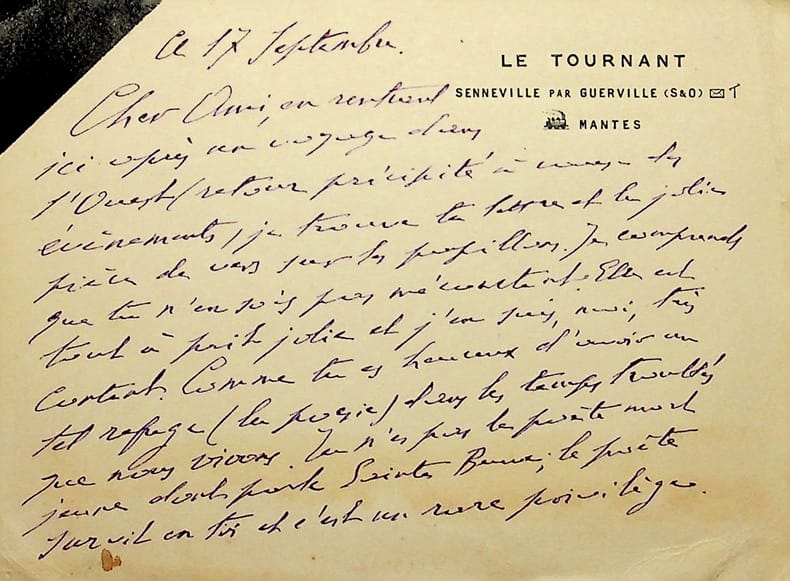 Ce 17 Septembre.
LE TOURNANT
SENNEVILLE PAR GUERVILLE (S&O)
MANTES
Cher Ami, en rentrant
ici après un voyage dans
l'Ouest (retour précipité à cause des
évènements, je trouve ta lettre et la jolie
pièce de vers sur les papillons. Je comprends
que tu n'en sois pas mécontent. Elle est
tout à fait jolie et j'en suis, moi, très
content. Comme tu es heureux d'avoir un
tel refuge (la poésie) dans les temps troublés
que nous vivons. Tu n'es pas le poète mort
jeune dont parle Sainte Beuve; le poète
survit en toi et c'est un rare privilège.